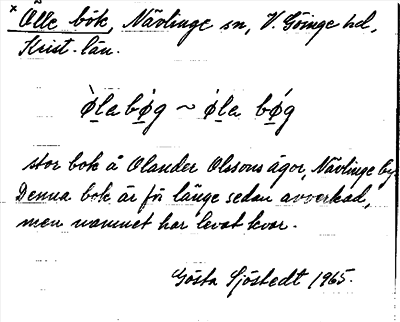 × Ölle bök, Nävlinge sn, V. Göinge hd,
Krist. län.
ø̀la bø̀g ~ ǿla bǿg
stor bok å Olander Olssons ägor, Nävlinge by.
Denna bok är för länge sedan avverkad,
men namnet har levat kvar.
Gösta Sjöstedt 1965.